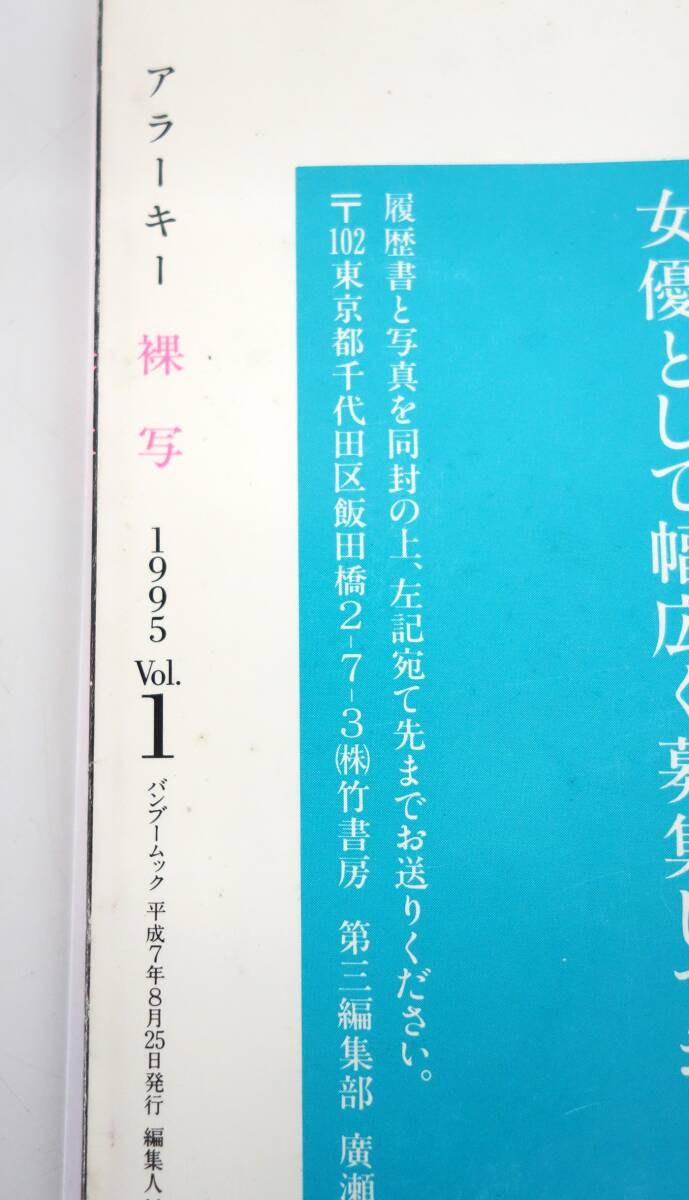 女優として幅広く募集して
履歴書と写真を同封の上、左記宛て先までお送りください。
〒102東京都千代田区飯田橋2-7-3㈱竹書房 第三編集部 廣瀬
アラーキー 裸写 1995 Vol.1 バンブームック 平成7年8月25日発行 編集人